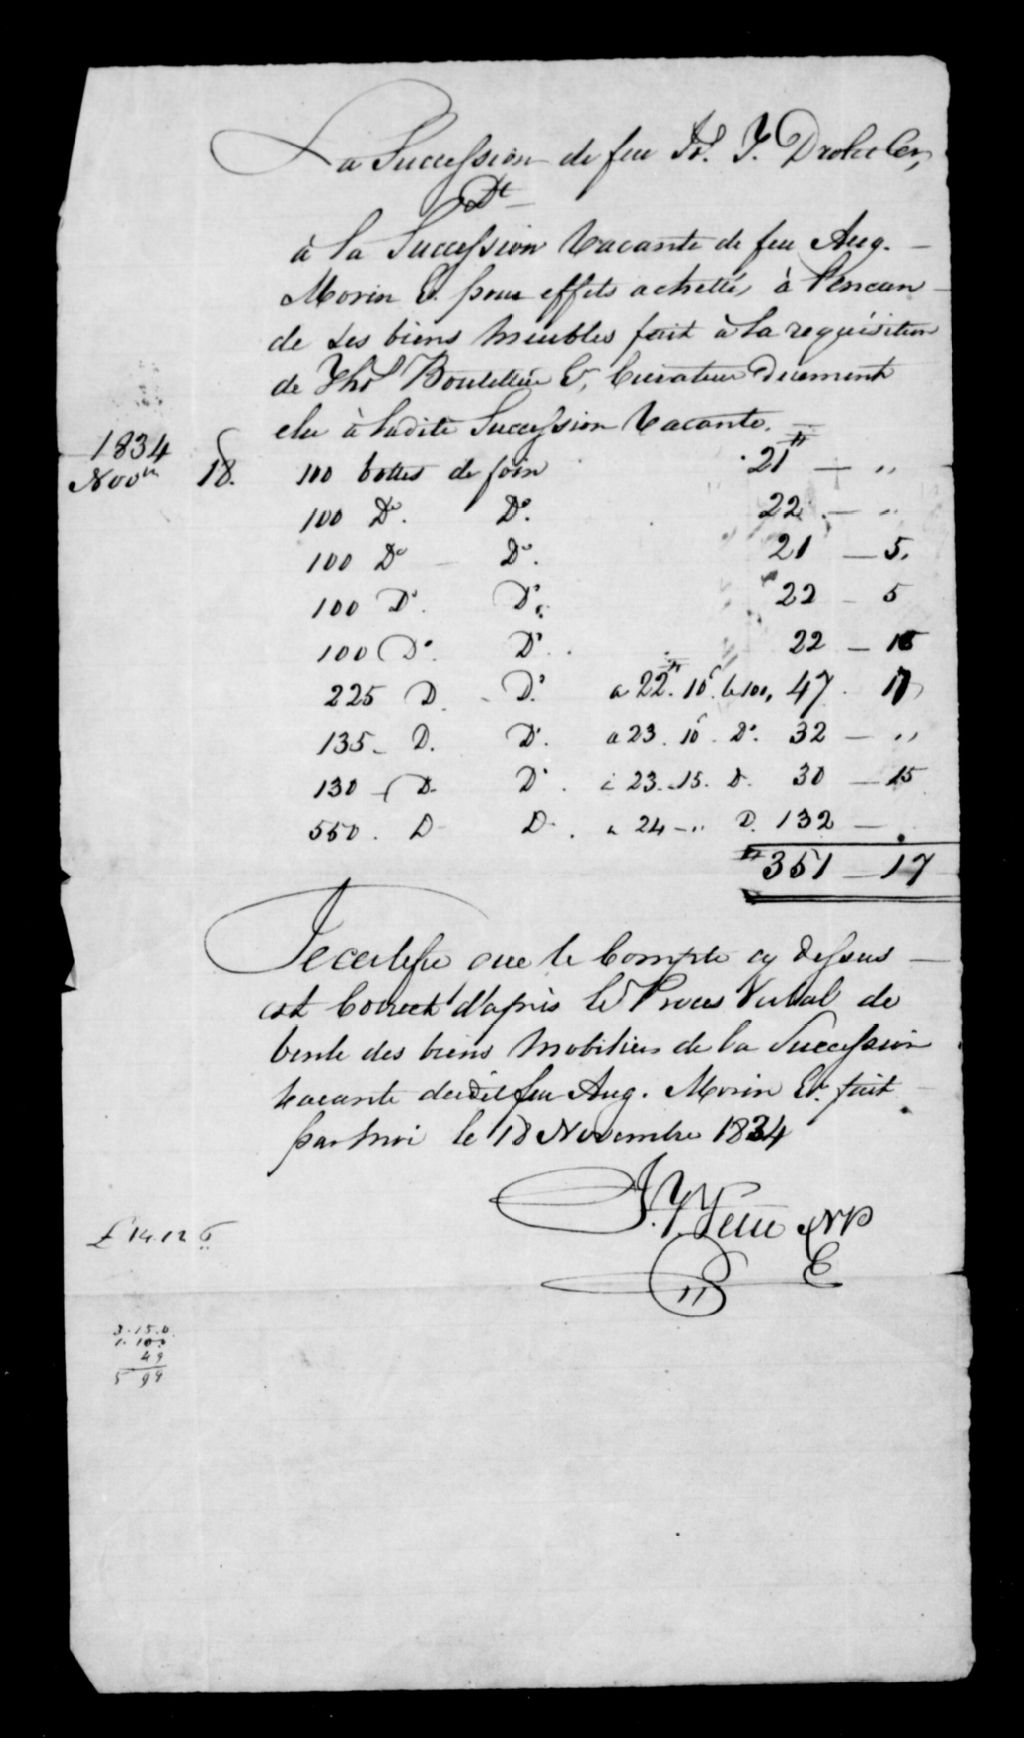 La Succession de feu Fr. X. Drolet Cer,
Dt
à la Succession Vacante de feu Aug. —
Morin Er. pour effets achettés à l'encan —
de ses biens meubles fait à la requisition
de Ths Bouteiller Er, Curateur Duement
elu à ladite Succession Vacante. —
1834
Novre 18. 100 bottes de foin 21# — "
100 Do. Do. 22 — "
100 Do — Do. 21 — 5.
100 Do. Do. 22 — 5
100 Do. Do. 22 — 15
225 D. - Do. a 22#. 10s. le 100, 47. 17
135 - D. Do. a 23. 10s. Do. 32 — "
130 - D. Do. à 23. 15. D. 30 — 15
550. D. D. a 24 - " D. 132 — .
# 351 — 17
Je certifie que le Compte cy dessus —
est Correct d'aprés le Proces Verbal de
Vente des biens Mobiliers de la Succession
Vacante dudit feu Aug. Morin Er. fait —
par moi le 18 Novembre 1834
NP
E
£ 14.12 6
3.15.0
49
5 99